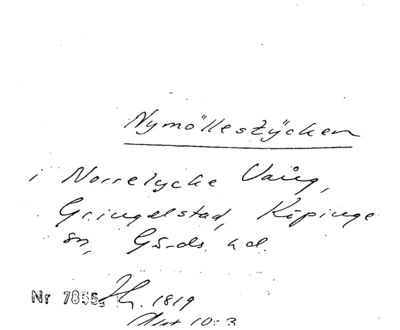 Nymöllestÿcken
i Norrelycke Vång,
Gringelstad, Köpinge
sn, Gärds hd
Nr 7855, Hz. 1819
Akt 10:3